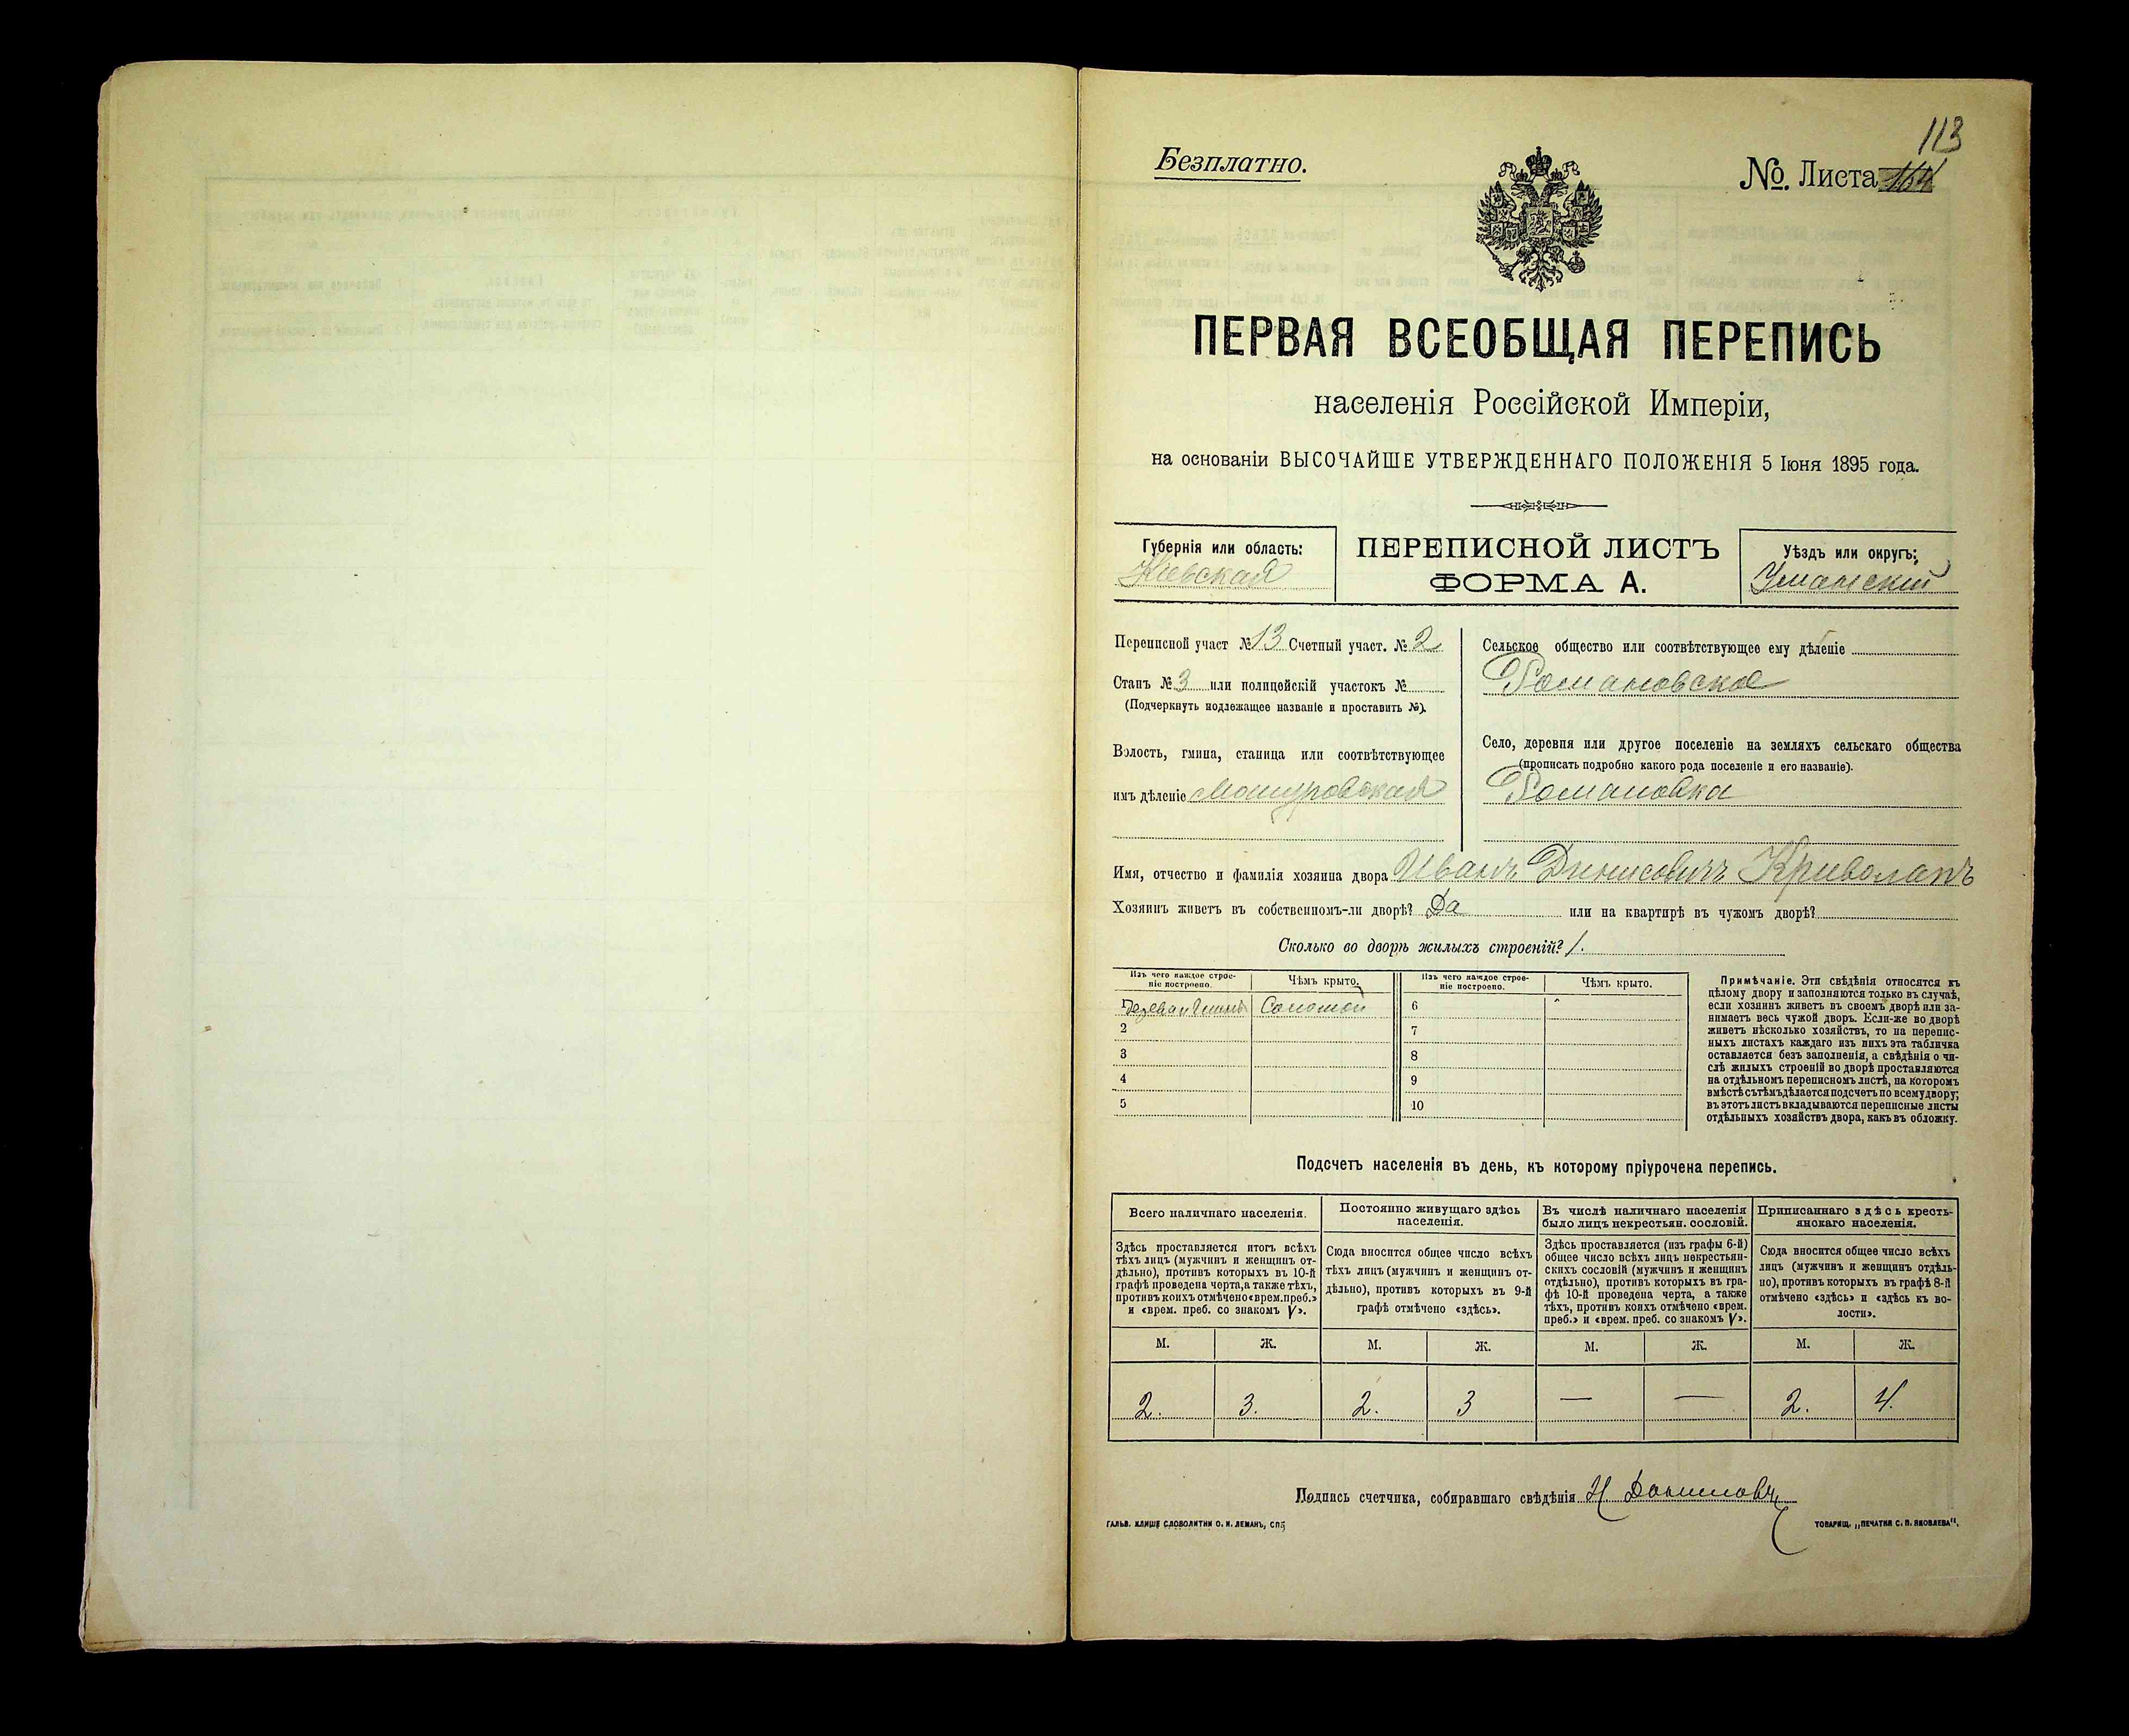 113
Безплатно.
№. Листа 164
ПЕРВАЯ ВСЕОБЩАЯ ПЕРЕПИСЬ
населенія Россійской Имперіи,
на основаніи ВЫСОЧАЙШЕ УТВЕРЖДЕННАГО ПОЛОЖЕНІЯ 5 Іюня 1895 года.
Губернія или область:
Кіевская
ПЕРЕПИСНОЙ ЛИСТЪ
ФОРМА А.
Уѣздъ или округъ:
Уманскій
Переписной участ № 13 Счетный участ. № 2
Станъ № 3 или полицейскій участокъ №
(Подчеркнуть подлежащее названіе и проставить №).
Волость, гмина, станица или соотвѣтствующее
имъ дѣленіе Машуровская
Сельское общество или соотвѣтствующее ему дѣленіе
Романовское
Село, деревня или другое поселеніе на земляхъ сельскаго общества
(прописать подробно какого рода поселеніе и его названіе).
Романовка
Имя, отчество и фамилія хозяина двора Иванъ Динисовичъ Криволапъ
Хозяинъ живетъ въ собственномъ-ли дворѣ? Да или на квартирѣ въ чужомъ дворѣ?
Сколько во дворѣ жилыхъ строеній? 1.
Изъ чего каждое строе-
ніе построено.
Чѣмъ крыто.
Изъ чего каждое строе-
ніе построено.
Чѣмъ крыто.
Соломой
6
2
7
3
8
4
9
5
10
Примѣчаніе. Эти свѣдѣнія относятся къ
цѣлому двору и заполняются только въ случаѣ,
если хозяинъ живетъ въ своемъ дворѣ или за-
нимаетъ весь чужой дворъ. Если-же во дворѣ
живетъ нѣсколько хозяйствъ, то на перепис-
ныхъ листахъ каждаго изъ нихъ эта табличка
оставляется безъ заполненія, а свѣдѣнія о чи-
слѣ жилыхъ строеній во дворѣ проставляются
на отдѣльномъ переписномъ листѣ, на которомъ
вмѣстѣ съ тѣмъ дѣлается подсчетъ по всему двору;
въ этотъ листъ вкладываются переписные листы
отдѣльныхъ хозяйствъ двора, какъ въ обложку.
Подсчетъ населенія въ день, къ которому пріурочена перепись.
Всего наличнаго населенія.
Здѣсь проставляется итогъ всѣхъ
тѣхъ лицъ (мужчинъ и женщинъ от-
дѣльно), противъ которыхъ въ 10-й
графѣ проведена черта, а также тѣхъ,
противъ коихъ отмѣчено «врем. преб.»
и «врем. преб. со знакомъ V».
Постоянно живущаго здѣсь
населенія.
Сюда вносится общее число всѣхъ
тѣхъ лицъ (мужчинъ и женщинъ от-
дѣльно), противъ которыхъ въ 9-й
графѣ отмѣчено «здѣсь».
Въ числѣ наличнаго населенія
было лицъ некрестьян. сословій.
Здѣсь проставляется (изъ графы 6-й)
общее число всѣхъ лицъ некрестьян-
скихъ сословій (мужчинъ и женщинъ
отдѣльно), противъ которыхъ въ гра-
фѣ 10-й проведена черта, а также
тѣхъ, противъ коихъ отмѣчено «врем.
преб.» и «врем. преб. со знакомъ V».
Приписаннаго здѣсь кресть-
янскаго населенія.
Сюда вносится общее число всѣхъ
лицъ (мужчинъ и женщинъ отдѣль-
но), противъ которыхъ въ графѣ 8-й
отмѣчено «здѣсь» и «здѣсь къ во-
лости».
М. Ж. М. Ж. М. Ж. М. Ж.
2. 3. 2. 3 — — 2. 4.
Подпись счетчика, собиравшаго свѣдѣнія Н Даниловъ
ГАЛЬВ. КЛИШЕ СЛОВОЛИТНИ О. И. ЛЕМАНЪ, СПБ
ТОВАРИЩ. „ПЕЧАТНЯ С. П. ЯКОВЛЕВА“.